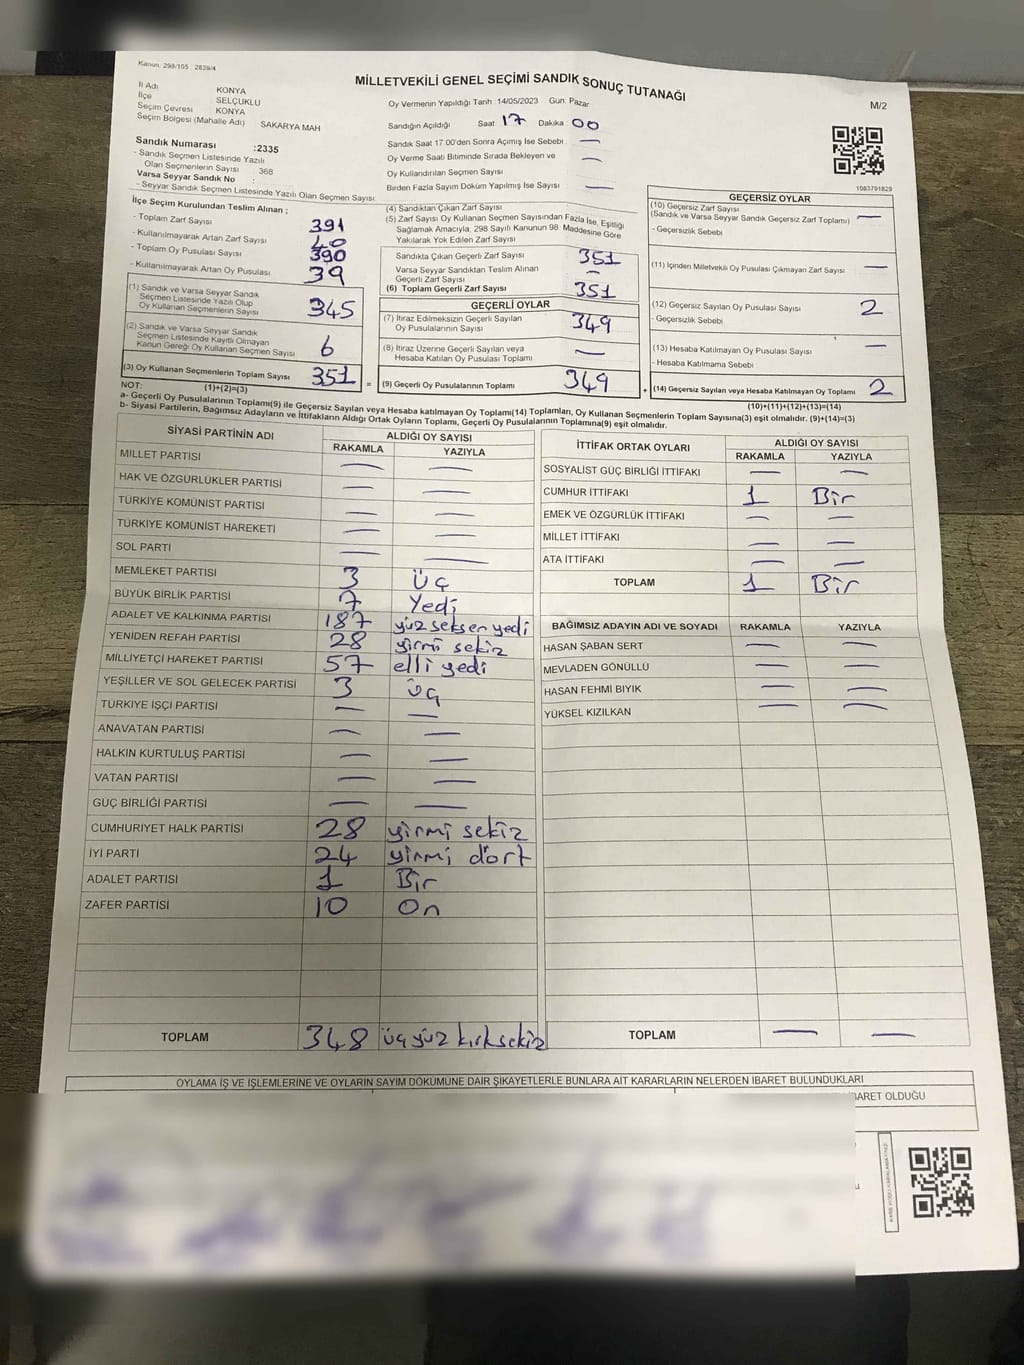 Kanun: 298/105 : 2839/4
MİLLETVEKİLİ GENEL SEÇİMİ SANDIK SONUÇ TUTANAĞI
M/2
İl Adı KONYA
İlçe SELÇUKLU
Seçim Çevresi KONYA
Seçim Bölgesi (Mahalle Adı) SAKARYA MAH
Sandık Numarası :2335
- Sandık Seçmen Listesinde Yazılı
Olan Seçmenlerin Sayısı : 368
Varsa Seyyar Sandık No :
- Seyyar Sandık Seçmen Listesinde Yazılı Olan Seçmen Sayısı
Oy Vermenin Yapıldığı Tarih :14/05/2023 Gün: Pazar
Sandığın Açıldığı Saat 17 Dakika 00
Sandık Saat 17:00'den Sonra Açımış İse Sebebi —
Oy Verme Saati Bitiminde Sırada Bekleyen ve
Oy Kullandırılan Seçmen Sayısı —
Birden Fazla Sayım Döküm Yapılmış İse Sayısı —
1083791829
İlçe Seçim Kurulundan Teslim Alınan ;
- Toplam Zarf Sayısı 391
- Kullanılmayarak Artan Zarf Sayısı 40
- Toplam Oy Pusulası Sayısı 390
- Kullanılmayarak Artan Oy Pusulası 39
(1) Sandık ve Varsa Seyyar Sandık
Seçmen Listesinde Yazılı Olup
Oy Kullanan Seçmenlerin Sayısı 345
(2) Sandık ve Varsa Seyyar Sandık
Seçmen Listesinde Kayıtlı Olmayan
Kanun Gereği Oy Kullanan Seçmen Sayısı 6
(3) Oy Kullanan Seçmenlerin Toplam Sayısı 351
(4) Sandıktan Çıkan Zarf Sayısı
(5) Zarf Sayısı Oy Kullanan Seçmen Sayısından Fazla İse, Eşitliği
Sağlamak Amacıyla, 298 Sayılı Kanunun 98. Maddesine Göre
Yakılarak Yok Edilen Zarf Sayısı
Sandıkta Çıkan Geçerli Zarf Sayısı 351
Varsa Seyyar Sandıktan Teslim Alınan
Geçerli Zarf Sayısı —
(6) Toplam Geçerli Zarf Sayısı 351
GEÇERLİ OYLAR
(7) İtiraz Edilmeksizin Geçerli Sayılan
Oy Pusulalarının Sayısı 349
(8) İtiraz Üzerine Geçerli Sayılan veya
Hesaba Katılan Oy Pusulası Toplamı —
= (9) Geçerli Oy Pusulalarının Toplamı 349
GEÇERSİZ OYLAR
(10) Geçersiz Zarf Sayısı
(Sandık ve Varsa Seyyar Sandık Geçersiz Zarf Toplamı) —
- Geçersizlik Sebebi
(11) İçinden Milletvekili Oy Pusulası Çıkmayan Zarf Sayısı —
(12) Geçersiz Sayılan Oy Pusulası Sayısı 2
- Geçersizlik Sebebi
(13) Hesaba Katılmayan Oy Pusulası Sayısı —
- Hesaba Katılmama Sebebi
+ (14) Geçersiz Sayılan veya Hesaba Katılmayan Oy Toplamı 2
NOT: (1)+(2)=(3)
(10)+(11)+(12)+(13)=(14)
a- Geçerli Oy Pusulalarının Toplamı(9) ile Geçersiz Sayılan veya Hesaba katılmayan Oy Toplamı(14) Toplamları, Oy Kullanan Seçmenlerin Toplam Sayısına(3) eşit olmalıdır. (9)+(14)=(3)
b- Siyasi Partilerin, Bağımsız Adayların ve İttifakların Aldığı Ortak Oyların Toplamı, Geçerli Oy Pusulalarının Toplamına(9) eşit olmalıdır.
SİYASİ PARTİNİN ADI ALDIĞI OY SAYISI
RAKAMLA YAZIYLA
MİLLET PARTİSİ — —
HAK VE ÖZGÜRLÜKLER PARTİSİ — —
TÜRKİYE KOMÜNİST PARTİSİ — —
TÜRKİYE KOMÜNİST HAREKETİ — —
SOL PARTİ — —
MEMLEKET PARTİSİ 3 üç
BÜYÜK BİRLİK PARTİSİ 7 Yedi
ADALET VE KALKINMA PARTİSİ 187 yüz seksen yedi
YENİDEN REFAH PARTİSİ 28 yirmi sekiz
MİLLİYETÇİ HAREKET PARTİSİ 57 elli yedi
YEŞİLLER VE SOL GELECEK PARTİSİ 3 üç
TÜRKİYE İŞÇİ PARTİSİ — —
ANAVATAN PARTİSİ — —
HALKIN KURTULUŞ PARTİSİ — —
VATAN PARTİSİ — —
GÜÇ BİRLİĞİ PARTİSİ — —
CUMHURİYET HALK PARTİSİ 28 yirmi sekiz
İYİ PARTİ 24 yirmi dört
ADALET PARTİSİ 1 Bir
ZAFER PARTİSİ 10 On
TOPLAM 348 üçyüz kırksekiz
İTTİFAK ORTAK OYLARI ALDIĞI OY SAYISI
RAKAMLA YAZIYLA
SOSYALİST GÜÇ BİRLİĞİ İTTİFAKI — —
CUMHUR İTTİFAKI 1 Bir
EMEK VE ÖZGÜRLÜK İTTİFAKI — —
MİLLET İTTİFAKI — —
ATA İTTİFAKI — —
TOPLAM 1 Bir
BAĞIMSIZ ADAYIN ADI VE SOYADI RAKAMLA YAZIYLA
HASAN ŞABAN SERT — —
MEVLADEN GÖNÜLLÜ — —
HASAN FEHMİ BIYIK — —
YÜKSEL KIZILKAN — —
TOPLAM — —
OYLAMA İŞ VE İŞLEMLERİNE VE OYLARIN SAYIM DÖKÜMÜNE DAİR ŞİKAYETLERLE BUNLARA AİT KARARLARIN NELERDEN İBARET BULUNDUKLARI
OLDUĞU